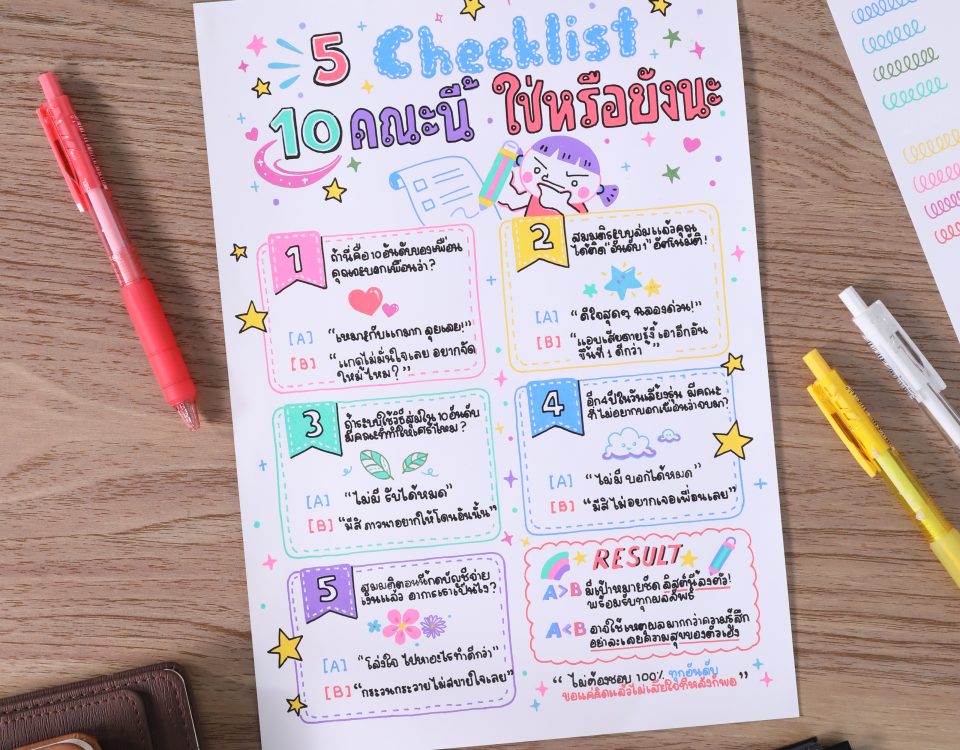 5 Checklist
10 คณะนี้ ใช่หรือยังนะ
1
ถ้านี่คือ 10 อันดับของเพื่อน
คุณจะบอกเพื่อนว่า?
[A] “เหมาะกับแกมาก ลุยเลย!”
[B] “แกดูไม่มั่นใจเลย อยากจัด
ใหม่ไหม?”
2
สมมติระบบล่มแล้วคุณ
ได้ติด “อันดับ 1” อัตโนมัติ!
[A] “ดีใจสุดๆ ฉลองด่วน!”
[B] “แอบเสียดายรู้งี้ เอาอีกอัน
ขึ้นที่ 1 ดีกว่า”
3
ถ้าระบบใช้วิธีสุ่มใน 10 อันดับ
มีคณะที่ทำให้เศร้าไหม?
[A] “ไม่มี รับได้หมด”
[B] “มีสิ ภาวนาอยากให้โดนอันนั้น”
4
อีก 4 ปีในวันเลี้ยงรุ่น มีคณะ
ที่ไม่อยากบอกเพื่อนว่าจบมา?
[A] “ไม่มี บอกได้หมด”
[B] “มีสิ ไม่อยากเจอเพื่อนเลย”
5
สมมติตอนนี้กดบัญชีจ่าย
เงินแล้ว อาการเราเป็นไง?
[A] “โล่งใจ ไปหาอะไรทำดีกว่า”
[B] “กระวนกระวายไม่สบายใจเลย”
RESULT
A>B มีเป้าหมายชัด ลิสต์นี้ลงตัว!
พร้อมรับทุกผลลัพธ์
A<B อาจใช้เหตุผลมากกว่าความรู้สึก
อย่าละเลยความสุขของตัวเอง
“ไม่ต้องชอบ 100% ทุกอันดับ
ขอแค่คิดแล้วไม่เสียใจทีหลังก็พอ”